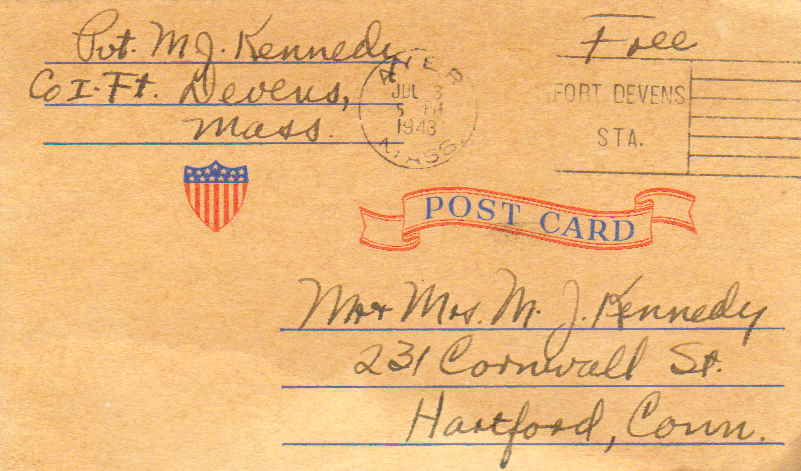 Pvt. M J. Kennedy
Co I. Ft. Devens,
Mass.
Free
AYER
JUL 3
5 PM
1943
MASS.
FORT DEVENS
STA.
POST CARD
Mr & Mrs. M. J. Kennedy
231 Cornwall St.
Hartford, Conn.